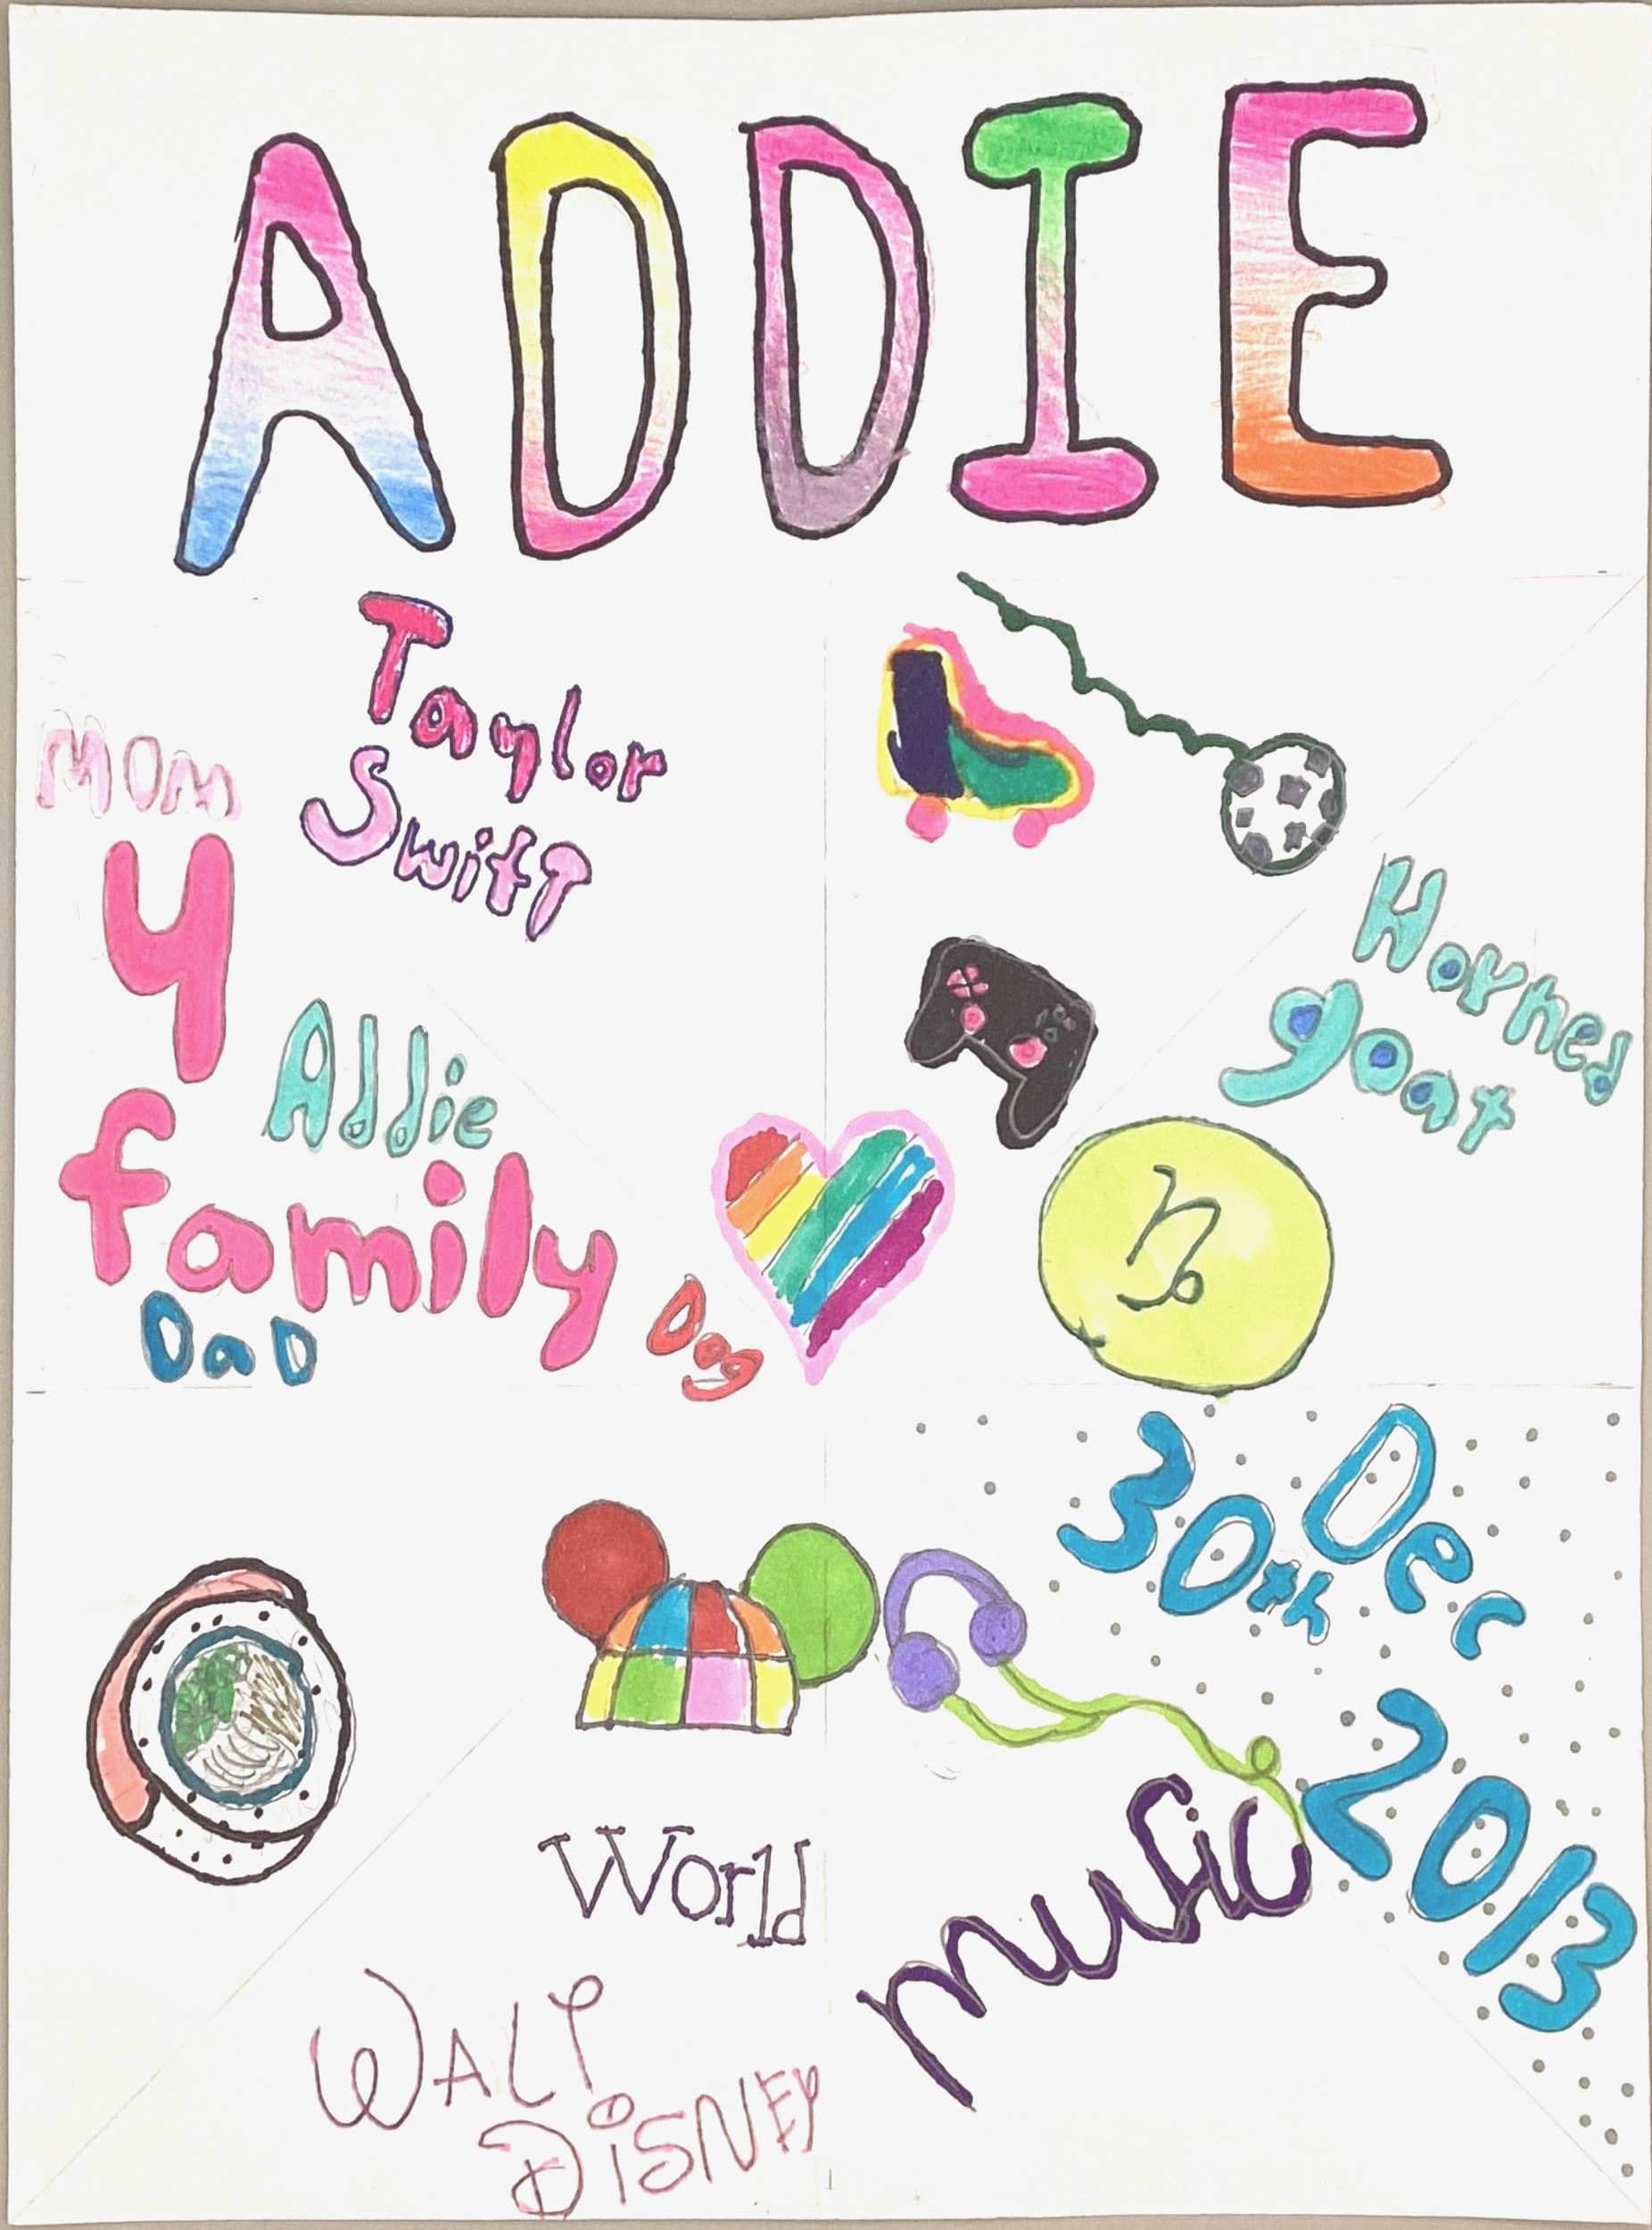 ADDIE
Taylor
Swift
Mom
4
Addie
family
Dad
Dog
Horned
goat
♑
30th Dec
2013
music
World
WALT
DISNEY